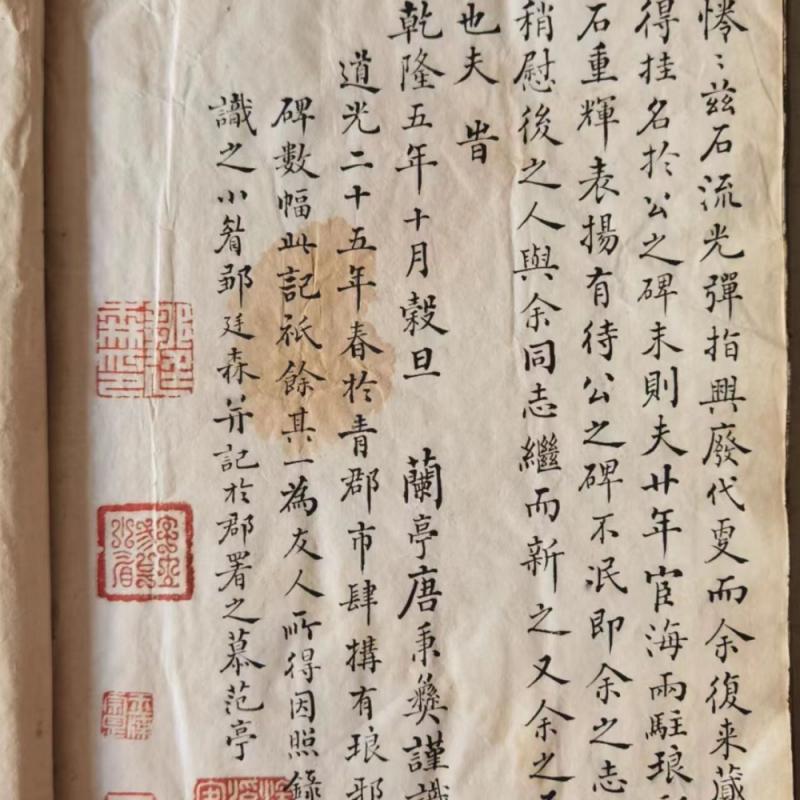 惓〻茲石流光彈指興廢代更而余復来蒇
得挂名於公之碑末則夫廿年宦海兩駐琅
石重輝表揚有待公之碑不泯即余之志
稍慰後之人與余同志繼而新之又余之
也夫 旹
乾隆五年十月穀旦 蘭亭唐秉彝謹識
道光二十五年春於青郡市肆搆有琅邪
碑數幅此記祇餘其一為友人所得因照錄
識之小眉鄒廷森并記於郡署之慕范亭